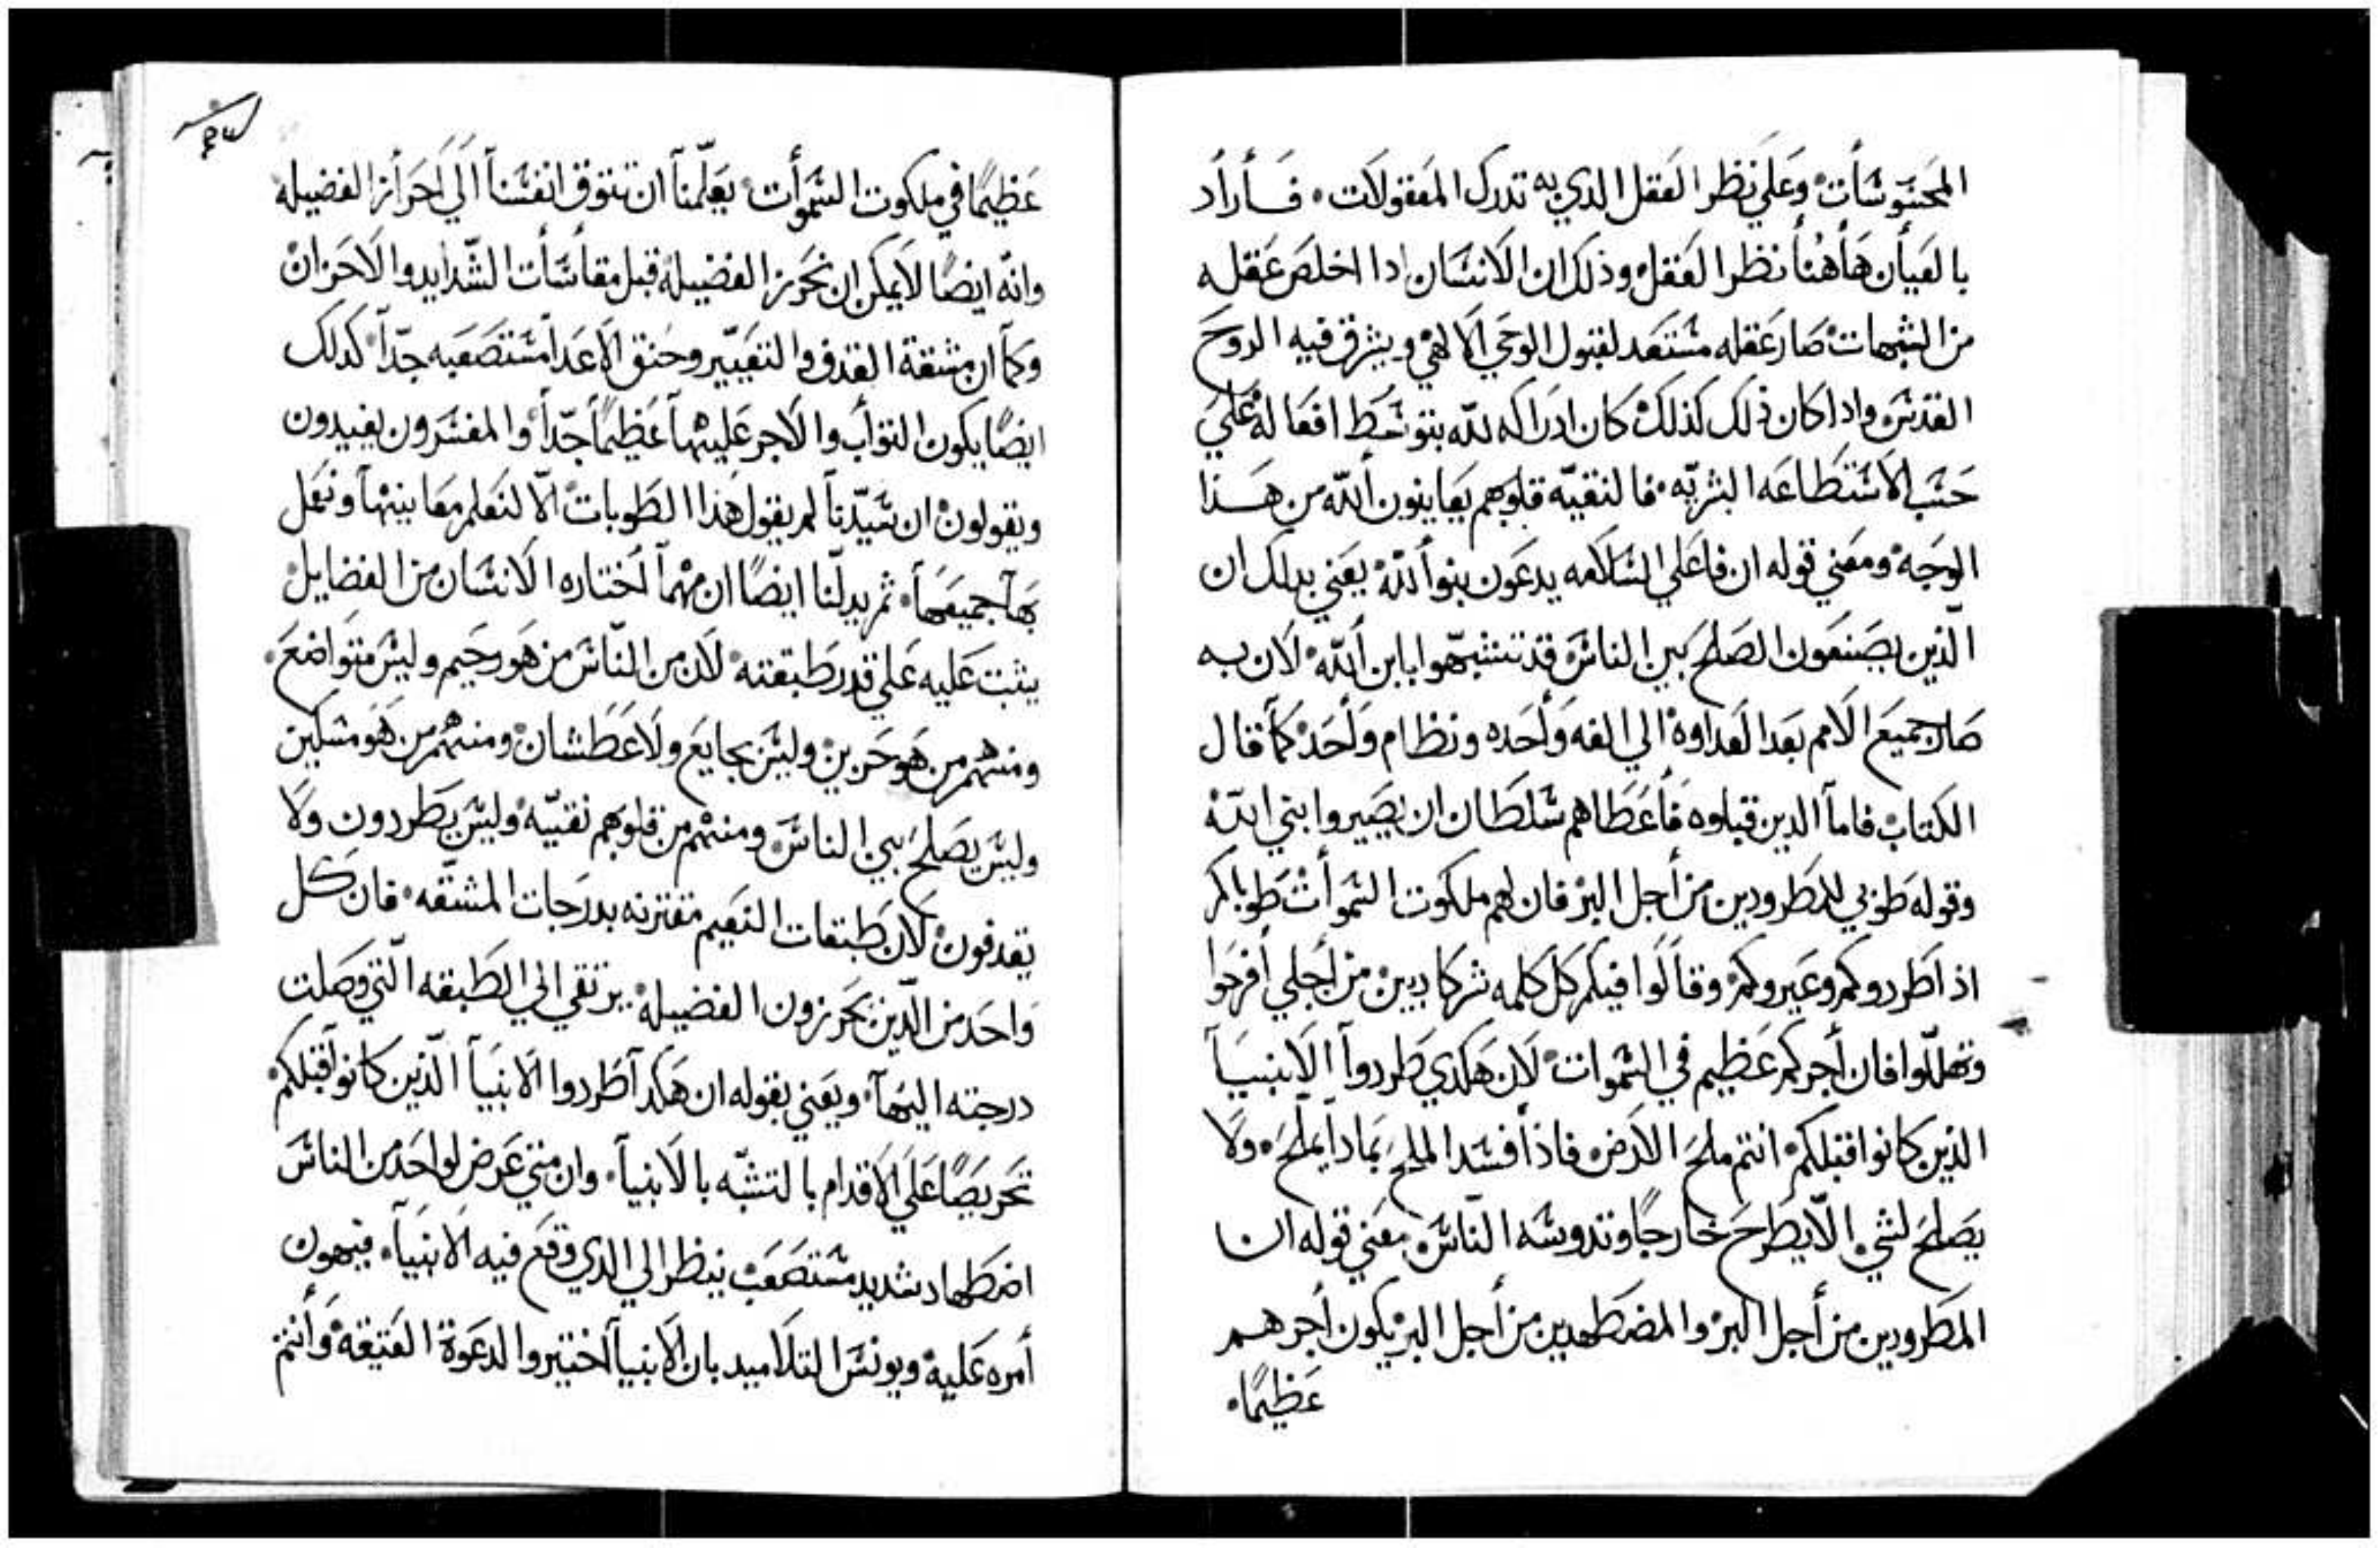 المحسوسات وعلي نظر العقل الدي به تدرك المعقولات . فاراد
بالعيان هاهنا نظر العقل وذلك ان الانسان ادا اخلص عقله
من الشبهات صار عقله مستعد لقبول الوحي الالهي ويشرق فيه الروح
القدس وادا كان ذلك كذلك كان ادراكه لله بتوسط افعاله علي
حسب الاستطاعه البشريه . فالنقيه قلوبهم يعاينون الله من هذا
الوجه ومعني قوله ان فاعلي السلامه يدعون بنوا الله يعني بدلك ان
الّذين يصنعون الصلح بين الناس قد تشبهوا بابن الله . لان به
صار جميع الامم بعد العداوه الي الفه واحده ونظام واحد كما قال
الكتاب فاما الدين قبلوه فاعطاهم سلطان ان يصيروا بني الله
وقوله طوبي للمطرودين من أجل البر فان لهم ملكوت السموات طوباكم
اذ اطردوكم وعيروكم وقالوا فيكم كل كلمه شر كادبين من أجلي أفرحوا
وتهللوا فان أجركم عظيم في السموات . لان هكدي طردوا الانبيا
الذين كانوا قبلكم انتم ملح الارض فاذا فسد الملح بمادا يملح . ولا
يصلح لشي الّا يطرح خارجًا وتدوسه النّاس معني قوله ان
المطرودين من أجل البر والمضطهدين من أجل البر يكون أجرهم
عظيمًا .
عظيمًا في ملكوت السموات يعلّمنا ان تتوق انفسنا الي احراز الفضيله
وانّه ايضًا لا يمكن ان نحرز الفضيلة قبل مقاسات الشدايد والاحزان
وكما ان مشقة القدف والتعيير وحنق الاعدا مستصعبه جدّا كدلك
ايضًا يكون التواب والاجر عليها عظيمًا جدّا والمفسرون يفيدون
ويقولون ان سيّدنا لم يقول هذا الطوبات الّا لنعلم معانيها ونعمل
بها جميعها . ثم يدلّنا ايضًا ان مهما اختاره الانسان من الفضايل
يثبت عليه علي قدر طبقته . لان من النّاس من هو رحيم وليس متواضع .
ومنهم من هو حزين وليس بجايع ولا عطشان ومنهم من هو مسكين
وليس يصلح بين الناس ومنهم من قلوبهم نقيّه وليس يطردون ولا
يقدفون لان طبقات النعيم مقترنه بدرجات المشقّه . فان كل
واحد من الّذين يحرزون الفضيلة يرتقي الي الطبقه الّتي وصلت
درجته اليها . ويعني بقوله ان هكدا طردوا الانبيا الّذين كانوا قبلكم
تحريصًا علي الاقدام بالتشبّه بالانبيا . وان متي عرض لواحد من الناس
اضطهاد شديد مستصعب ينظر الي الدي وقع فيه الانبيا . فيهون
أمره عليه ويونس التلاميد بان الانبيا اختيروا لدعوة العتيقة وأنتم